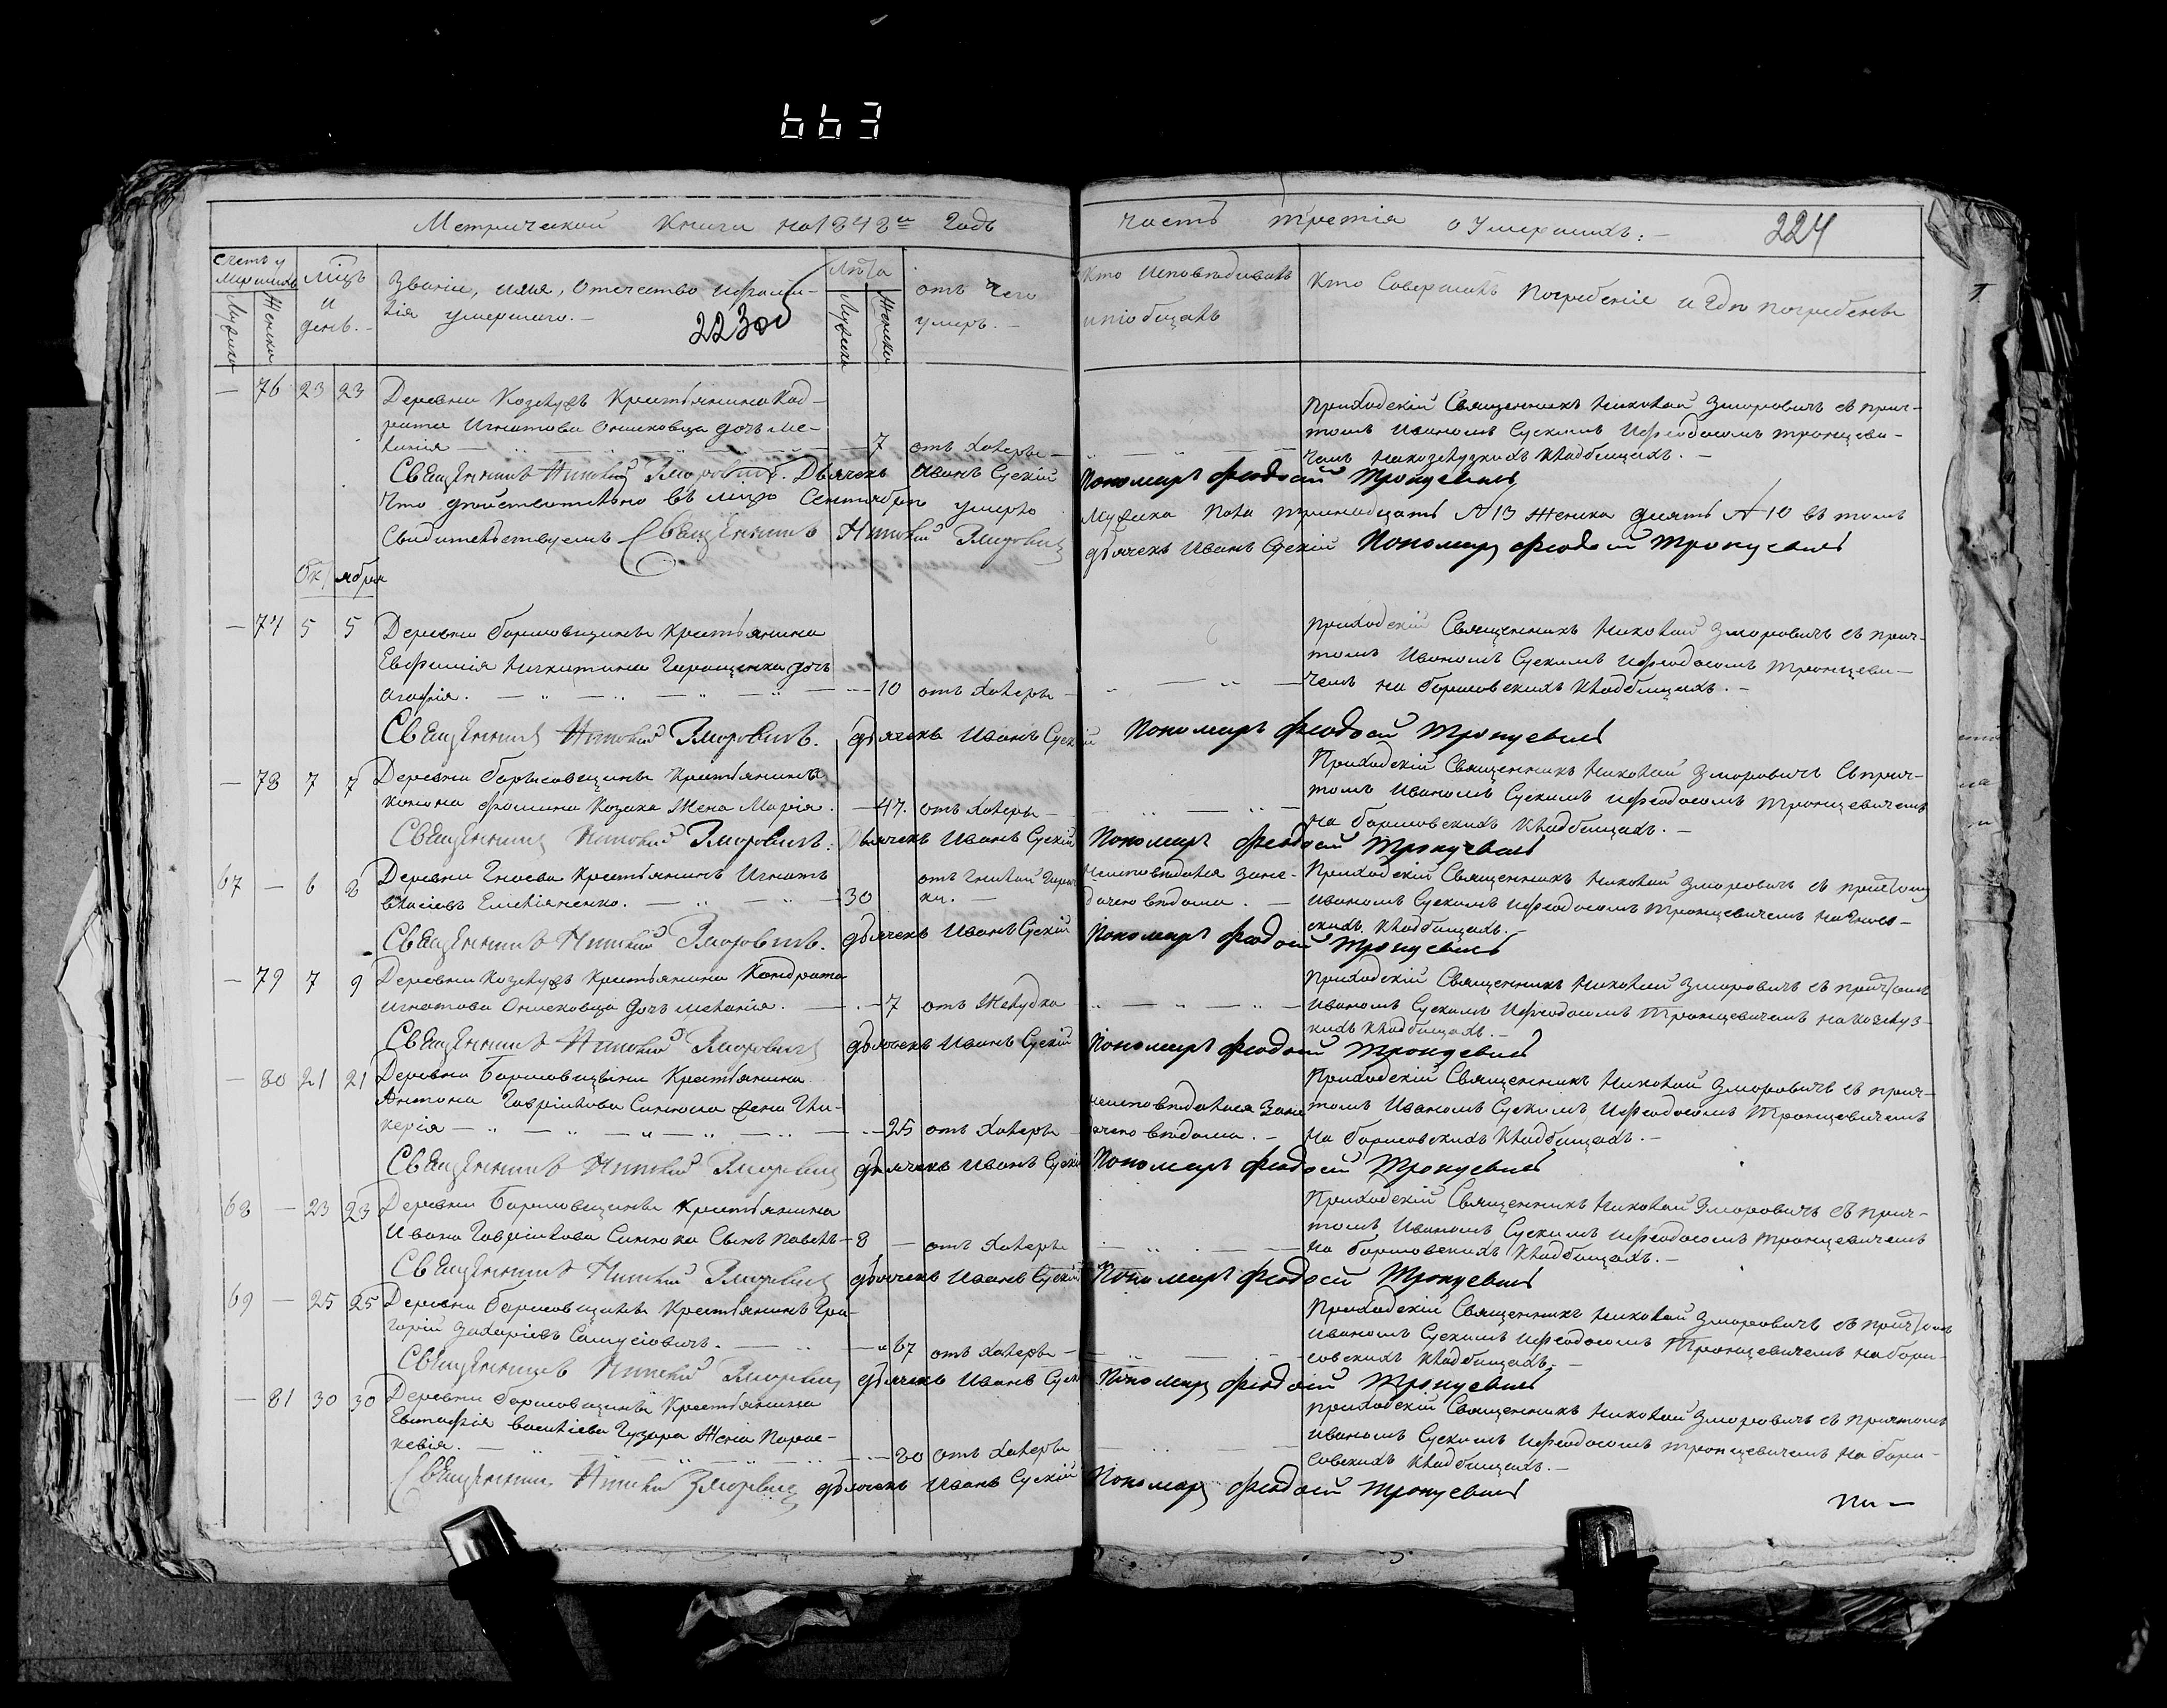 663
Метрической Книги на 1848й Годъ часть третія о Умершихъ:- 224
Счетъ умершихъ Мѣцъ и день.- Званіе, имя, Отечество и фамилія умершаго.- Лѣта от Чего умеръ.- Кто Исповѣдивалъ и пріобщалъ Кто Совершалъ Погребеніе и Гдѣ погребены
223об
Мужска Женска Мужска Женска
— 76 23 23 Деревни Козлукъ Крестьянина Кад-
рата Игнатова Онисковца дочь Ме-
ланія — 7 отъ Холеры —
Приходскій Священникъ Николай Зморовичъ съ прич-
томъ Иваномъ Сускимъ и Феодосомъ Тронцеви-
чемъ
Кладбищахъ. —
Священникъ Николай Зморовичъ. Дьячекъ Иванъ Сускій Пономарь Феодосій Тронцевичъ
Что дѣйствительно въ мѣцѣ Сентябрѣ умерло Мужска Пола тринадцать № 13 Женска десять № 10 въ томъ
Свидѣтельствуемъ Священникъ Николай Зморовичъ дьячекъ Иванъ Сускій Пономарь Феодосій Тронцевичъ
Октября
— 77 5 5 Деревни Борисовщины Крестьянина
Евфимія Никитина Геращенка дочь
Агафія. — 10 отъ Холеры —
Приходскій Священникъ Николай Зморовичъ съ прич-
томъ Иваномъ Сускимъ и Феодосомъ Тронцеви-
чемъ на борисовскихъ Кладбищахъ. —
Священникъ Николай Зморовичъ. дьячекъ Иванъ Сускій Пономарь Феодосій Тронцевичъ
— 78 7 7 Деревни Борисовщины Крестьянина
Конона Фомина Козака Жена Марія. — 47. отъ Холеры —
Приходскій Священникъ Николай Зморовичъ съ прич-
томъ Иваномъ Сускимъ и Феодосомъ Тронцевичемъ
на борисовскихъ Кладбищахъ. —
Священникъ Николай Зморовичъ. Дьячекъ Иванъ Сускій Пономарь Феодосій Тронцевичъ
67 — 6 8 Деревни Гноева Крестьянинъ Игнатъ
Власіевъ Емельяненко. — 30 отъ Гнилой Горяч
ки. — неисповѣдался зане-
дачею вѣдома. —
Приходскій Священникъ Николай Зморовичъ съ причтомъ
Иваномъ Сускимъ и Феодосомъ Тронцевичемъ на Гноев-
скихъ Кладбищахъ. —
Священникъ Николай Зморовичъ. дьячекъ Иванъ Сускій Пономарь Феодосій Тронцевичъ
— 79 7 9 Деревни Козлукъ Крестьянина Кондрата
Игнатова Онисковца дочь Меланія. — 7 отъ Желудка
Приходскій Священникъ Николай Зморовичъ съ причтомъ
Иваномъ Сускимъ и Феодосомъ Тронцевичемъ на Козлуз-
кихъ Кладбищахъ. —
Священникъ Николай Зморовичъ дьячекъ Иванъ Сускій Пономарь Феодосій Тронцевичъ
— 80 21 21 Деревни Борисовщины Крестьянина
Антона Гаврилова жена Гли-
керія — 25 отъ Холеры неисповѣдалася зане
дачею вѣдома. —
Приходскій Священникъ Николай Зморовичъ съ прич-
томъ Иваномъ Сускимъ и Феодосомъ Тронцевичемъ
на борисовскихъ Кладбищахъ. —
Священникъ Николай Зморовичъ дьячекъ Иванъ Сускій Пономарь Феодосій Тронцевичъ
68 — 23 23 Деревни Борисовщины Крестьянина
Ивана Гаврилова Сынъ Павелъ — 8 — отъ Холеры
Приходскій Священникъ Николай Зморовичъ съ прич-
томъ Иваномъ Сускимъ и Феодосомъ Тронцевичемъ
на борисовскихъ Кладбищахъ. —
Священникъ Николай Зморовичъ дьячекъ Иванъ Сускій Пономарь Феодосій Тронцевичъ
69 — 25 25 Деревни Борисовщины Крестьянинъ Гри-
горій Захаріевъ Самусіовичъ. — 67 отъ Холеры —
Приходскій Священникъ Николай Зморовичъ съ причтомъ
Иваномъ Сускимъ и Феодосомъ Тронцевичемъ на бори-
совскихъ Кладбищахъ. —
Священникъ Николай Зморовичъ дьячекъ Иванъ Сускій Пономарь Феодосій Тронцевичъ
— 81 30 30 Деревни Борисовщины Крестьянина
Евстафія Василіева Жена Парас-
кевія. — 80 отъ Холеры
Приходскій Священникъ Николай Зморовичъ съ причтомъ
Иваномъ Сускимъ и Феодосомъ Тронцевичемъ на бори-
совскихъ Кладбищахъ. —
Священникъ Николай Зморовичъ дьячекъ Иванъ Сускій Пономарь Феодосій Тронцевичъ